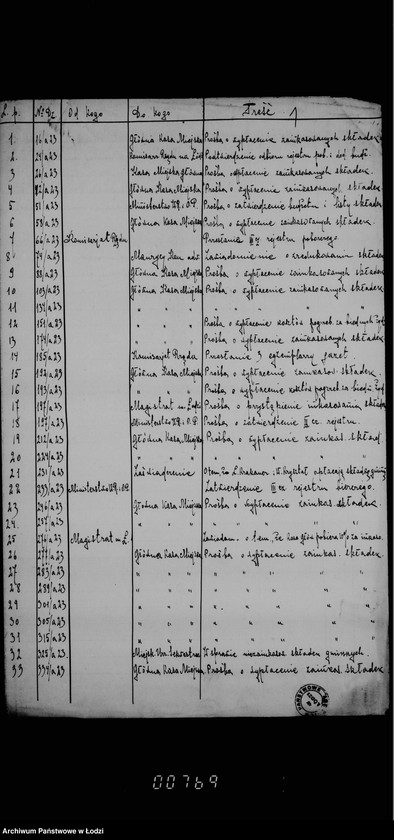 L. p. № Dz Od kogo Do kogo Treść 1
1. 16/a 23 Główna Kasa Miejska Prośba o wypłacenie zainkasowanych składek
2. 24/a 23 Komisarz Rządu na Łódź Podtwierdzenie odbioru rejestru pob. i
3 26/a 23 Kasa Miejska główna Prośba wypłacenie zainkasowanych składek.
4 42/a 23 Główna Kasa Miejska Prośba o wypłacenie zainkasowanych składek.
5 51/a 23 Ministerstwo WR. i OP Prośba o zatwierdzenie budżetu i listy składek
6 58/a 23 Główna Kasa Miejska Prośba o wypłacenie zainkasowanych składek.
7 66/a 23 Komisarjat Rządu Przesłanie II-go rejestru poborczego
8 74/a 23 Maurycy Zawiadomienie o zredukowaniu składki
9 88/a 23 Główna Kasa Miejska Prośba o wypłacenie zainkasowanych składek
10 103/a 23 Główna Kasa Miejska Prośba o wypłacenie zainkasowanych składek
11 132/a 23 " " " " " " "
12 151/a 23 " " " Prośba o wypłacenie kosztów pogrzeb. za biednych Żyd.
13 174/a 23 " " " Prośba o wypłacenie zainkasowanych składek
14 185/a 23 Komisarjat Rządu Przesłanie 3 egzemplarzy gazet.
15 192/a 23 Główna Kasa Miejska Prośba o wypłacenie zainkasow. składek.
16 193/a 23 " " " Prośba o wypłacenie kosztów pogrzeb. za biedn. Żyd.
17 195/a 23 Magistrat m. Łodzi Prośba o przyśpieszenie inkasowania składek
18 197/a 23 Ministerstwo WR. i O.P. Prośba o zatwierdzenie II-go rejestru.
19 212/a 23 Główna Kasa Miejska Prośba o wypłacenie zainkas. składek.
20 224/a 23 " " " " " " "
21 231/a 23 Zaświadczenie O tem, że Z. Krakowa i opłacają składkę gminną
22 233/a 23 Ministerstwo WR. i OP. Zatwierdzenie II-go rejestru biorczego.
23 246/a 23 Główna Kasa Miejska Prośba o wypłacenie zainkas. składek.
24. 257/a 23 " " " " " " "
25 276/a 23 Magistrat m. Ł. Zawiadom. o tem, że za inkaso.
26 277/a 23 Główna Kasa Miejska Prośba o wypłacenie zainkas. składek.
27 283/a 23 " " " " " " "
28 289/a 23 " " " " " " "
29 301/a 23 " " " " " " "
30 305/a 23 " " " " " " "
31 315/a 23 " " " " " " "
32 325/a 23 W sprawie niezainkasow. składek gminnych.
33 334/a 23 Główna Kasa Miejska Prośba o wypłacenie zainkas. składek
PAŃSTWOWE
00769
Archiwum Państwowe w Łodzi